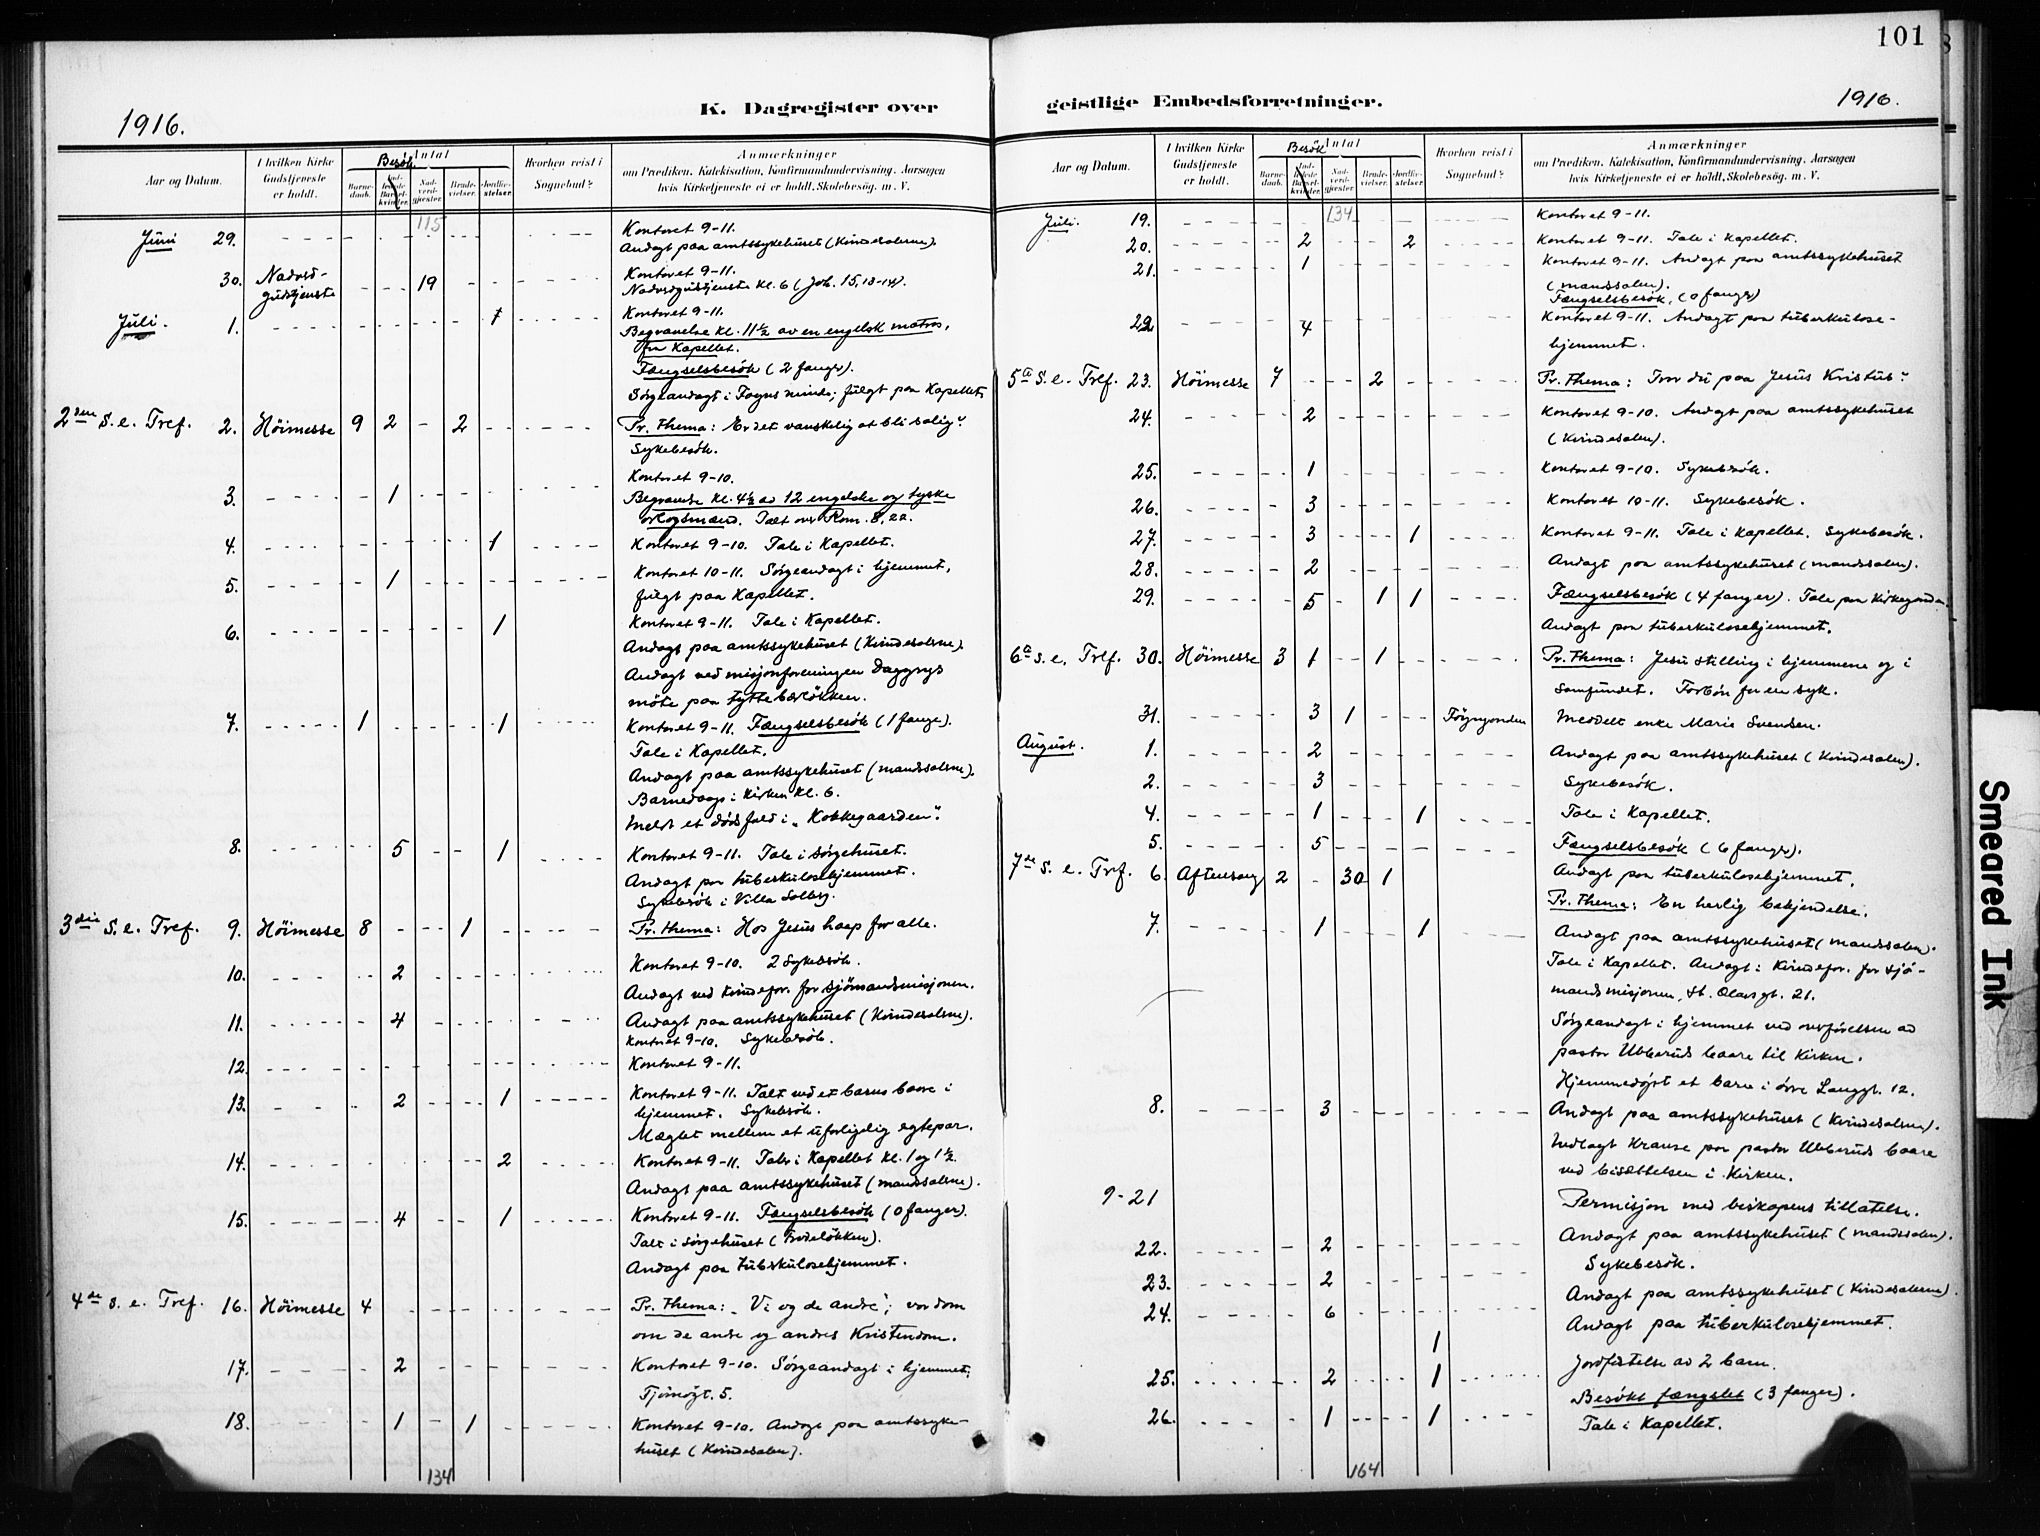 101
1916.
K. Dagregister over
geistlige Embedsforretninger.
1916.
Aar og Datum.
I hvilken Kirke Gudstjeneste er holdt.
Besök
Antal
Barne-daab.
Ind-ledede Barsel-kvinder.
Nad-verd-gjester.
Brude-vielser.
Jordfæ-stelser.
Hvorhen reist i Sognebud?
Anmærkninger
om Prædiken. Katekisation, Konfirmandundervisning. Aarsagen
hvis Kirketjeneste ei er holdt, Skolebesøg. m. V.
115
Juni 29. Kontoret 9-11.
Andagt paa amtssykehuset (Kvindesalene).
30. Nadvrd-gudstjenste 19 Kontoret 9-11.
Nadvrdgudstjenste kl. 6 (Joh. 15, 13-14).
Juli. 1. 1 Kontoret 9-11.
Begravelse kl. 11½ av en engelsk matros,
fra Kapellet.
Fængselsbesök (2 fanger).
Sörgeandagt i Foyns minde; fulgt paa Kapellet
2den S. e. Tref. 2. Höimesse 9 2 - 2 Pr. Thema: Er det vanskelig at bli salig?
Sykebesök.
3. 1 Kontoret 9-10.
Begravelse kl. 4½ av 12 engelske og tyske
orlogsmænd. Talt over Rom. 8, 22.
4. 1 Kontoret 9-10. Tale i Kapellet.
5. 1 Kontoret 10-11. Sörgeandagt i hjemmet,
fulgt paa Kapellet.
6. 1 Kontoret 9-11. Tale i Kapellet.
Andagt paa amtssykehuset (Kvindesalene).
Andagt ved misjonforeningen Daggrys
möte paa Tyttebærlökken.
7. 1 1 Kontoret 9-11. Fængselsbesök (1 fange).
Tale i Kapellet.
Andagt paa amtssykehuset (mandssalene).
Barnedaap i Kirken kl. 6.
Meldt et dödsfald i "Kokkegaarden".
8. 5 1 Kontoret 9-11. Tale i Sörgehuset.
Andagt paa tuberkulosehjemmet.
Sykebesök i Villa Solberg.
3die S. e. Tref. 9. Höimesse 8 1 Pr. Thema: Hos Jesus haap for alle.
10. 2 Kontoret 9-10. 2 Sykebesök.
Andagt ved Kvindefor. for Sjömandsmisjonen.
11. 4 Andagt paa amtssykehuset (Kvindesalene).
Kontoret 9-10. Sykebesök.
12. Kontoret 9-11.
13. 2 1 Kontoret 9-11. Talt ved et barns baare i
hjemmet. Sykebesök.
Mæglet mellem et uforligelig egtepar.
14. 2 Kontoret 9-11. Taler i Kapellet kl. 1 og 1½.
Andagt paa amtssykehuset (mandssalene).
15. 4 1 Kontoret 9-11. Fængselsbesök (0 fanger).
Talt i Sörgehuset (Trodelökken).
Andagt paa tuberkulosehjemmet.
4de S. e. Tref. 16. Höimesse 4 Pr. Thema: "Vi og de andre"; vor dom
om de andre og andres Kristendom.
17. 2 Kontoret 9-10. Sörgeandagt i hjemmet,
Tjömögt. 5.
18. 1 - 1 Kontoret 9-10. Andagt paa amtssyke-
huset (Kvindesalen).
134
Aar og Datum.
I hvilken Kirke Gudstjeneste er holdt.
Besök
Antal
Barne-daab.
Ind-ledede Barsel-kvinder.
Nad-verd-gjester.
Brude-vielser.
Jordfæ-stelser.
Hvorhen reist i Sognebud?
Anmærkninger
om Prædiken. Katekisation, Konfirmandundervisning. Aarsagen
hvis Kirketjeneste ei er holdt, Skolebesøg. m. V.
134
Juli. 19. Kontoret 9-11.
20. 2 2 Kontoret 9-11. Tale i Kapellet.
21. 1 Kontoret 9-11. Andagt paa amtssykehuset
(mandssalen).
Fængselsbesök, (0 fanger)
22. 4 Kontoret 9-11. Andagt paa tuberkulose-
hjemmet.
5te S. e. Tref. 23. Höimesse 7 2 Pr. Thema: Tror du paa Jesus Kristus?
24. 2 Kontoret 9-10. Andagt paa amtssykehuset
(Kvindesalen).
25. 1 Kontoret 9-10. Sykebesök.
26. 3 Kontoret 10-11. Sykebesök.
27. 3 1 Kontoret 9-11. Tale i Kapellet. Sykebesök.
28. 2 Andagt paa amtssykehuset (mandssalen).
29. 5 1 1 Fængselsbesök (4 fanger). Tale paa Kirkegaarden.
Andagt paa tuberkulosehjemmet.
6te S. e. Tref. 30. Höimesse 3 1 1 Pr. Thema: Jesu stilling i hjemmene og i
samfundet. Forbön for en syk.
31. 3 1 Meddelt enke Marie Svendsen.
August. 1. 2 Andagt paa amtssykehuset (Kvindesalen).
2. 3 Sykebesök.
4. 1 1 Tale i Kapellet.
5. 5 Fængselsbesök (6 fanger).
Andagt paa tuberkulosehjemmet.
7de S. e. Tref. 6. Aftensang 2 - 30 1 Pr. Thema: En herlig bekjendelse.
7. 1 1 Andagt paa amtssykehuset (mandssalen).
Tale i Kapellet. Andagt i Kvindefor. for sjö-
mandsmisjonen, St. Olavsgt. 21.
Sörgeandagt i hjemmet ved overförelsen av
pastor Ubberuds baare til Kirken.
Hjemmedöpt et barn i övre Langgt. 12.
8. 3 Andagt paa amtssykehuset (Kvindesalene).
Nedlagt Kranse paa pastor Ubberuds baare
ved bisættelsen i Kirken.
9-21 Permisjon med biskopens tillatelse.
22. 2 Andagt paa amtssykehuset (mandssalen).
Sykebesök.
23. 2 Andagt paa amtssykehuset (Kvindesalene).
24. 6 Andagt paa tuberkulosehjemmet.
1 Jordfestelse av 2 barn.
25. 2 1 Besökt fængslet (3 fanger).
26. 1 1 Tale i Kapellet.
164
Smeared Ink